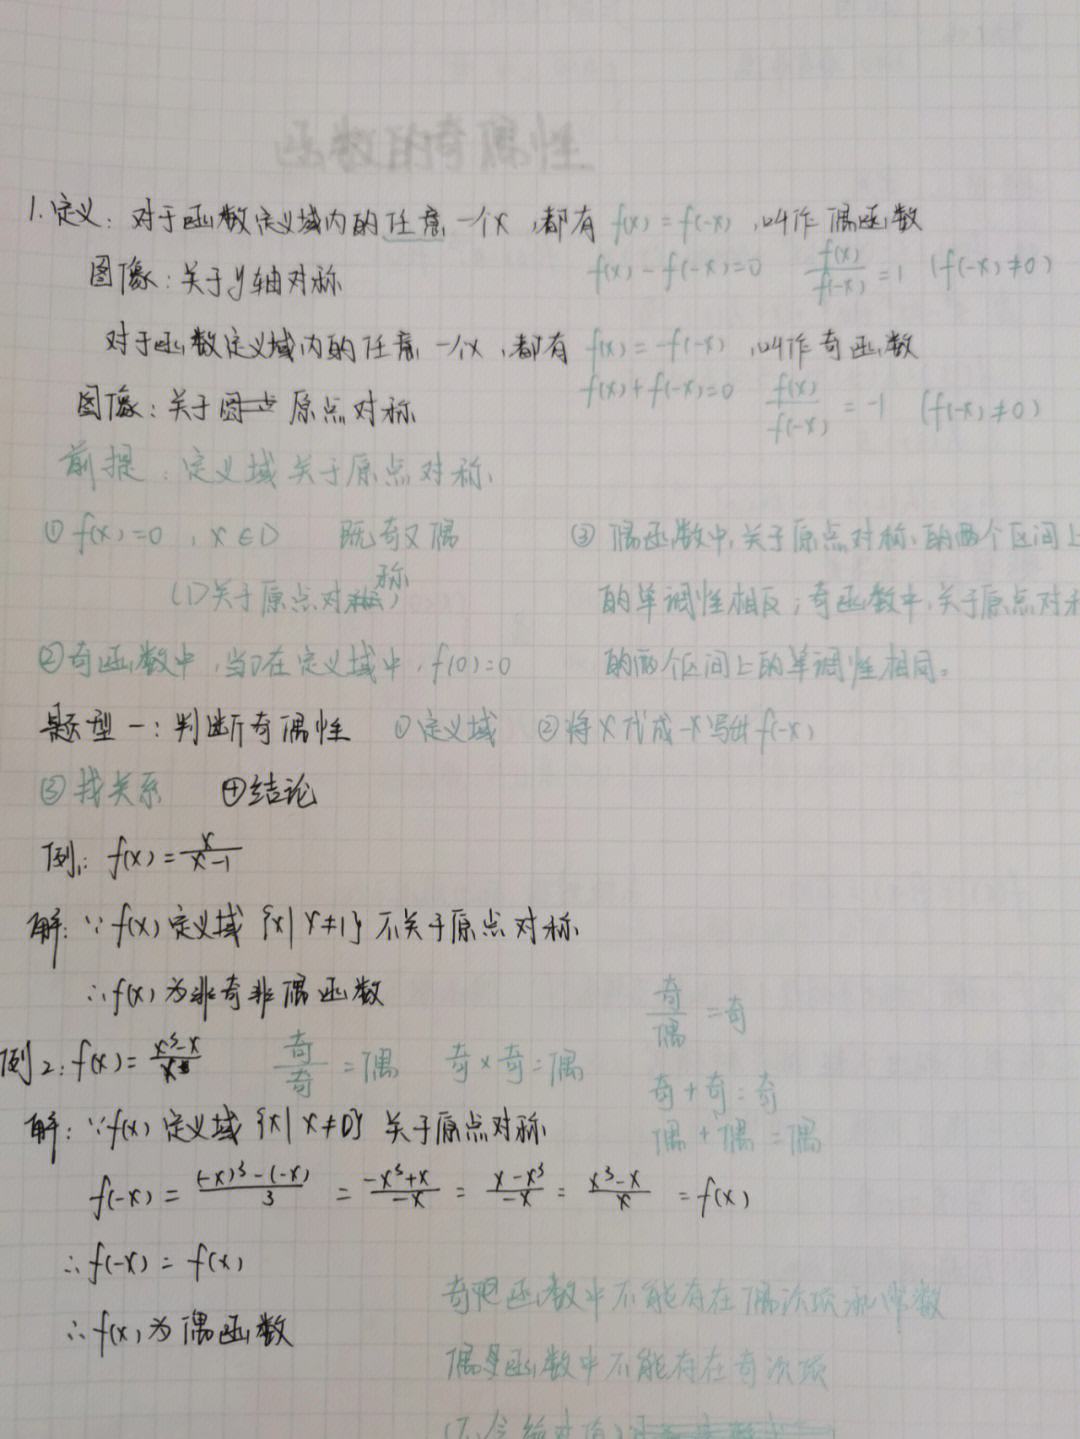 函数的奇偶性
1.定义：对于函数定义域内的任意一个x，都有 f(x)=f(-x)，叫作偶函数
图像：关于y轴对称 f(x)-f(-x)=0 f(x)/f(-x)=1 (f(-x)≠0)
对于函数定义域内的任意一个x，都有 f(x)=-f(-x)，叫作奇函数
图像：关于原点对称 f(x)+f(-x)=0 f(x)/f(-x)=-1 (f(-x)≠0)
前提：定义域关于原点对称
① f(x)=0，x∈D 既奇又偶
(D关于原点对称)
②奇函数中，当0在定义域中，f(0)=0
③ 偶函数中，关于原点对称的两个区间上
的单调性相反；奇函数中，关于原点对称
的两个区间上的单调性相同。
题型一：判断奇偶性 ①定义域 ②将x代成-x写出f(-x)
③找关系 ④结论
例1：f(x)=x/(x-1)
解：∵f(x)定义域{x|x≠1}不关于原点对称
∴f(x)为非奇非偶函数
例2：f(x)=(x³-x)/x 奇/奇=偶 奇×奇=偶
奇/偶=奇
奇+奇=奇
偶+偶=偶
解：∵f(x)定义域{x|x≠0}关于原点对称
f(-x)=((-x)³-(-x))/3=(-x³+x)/-x=(x-x³)/-x=(x³-x)/x=f(x)
∴f(-x)=f(x)
∴f(x)为偶函数
奇函数中不能存在偶次项和常数
偶函数中不能存在奇次项
(不含绝对值)